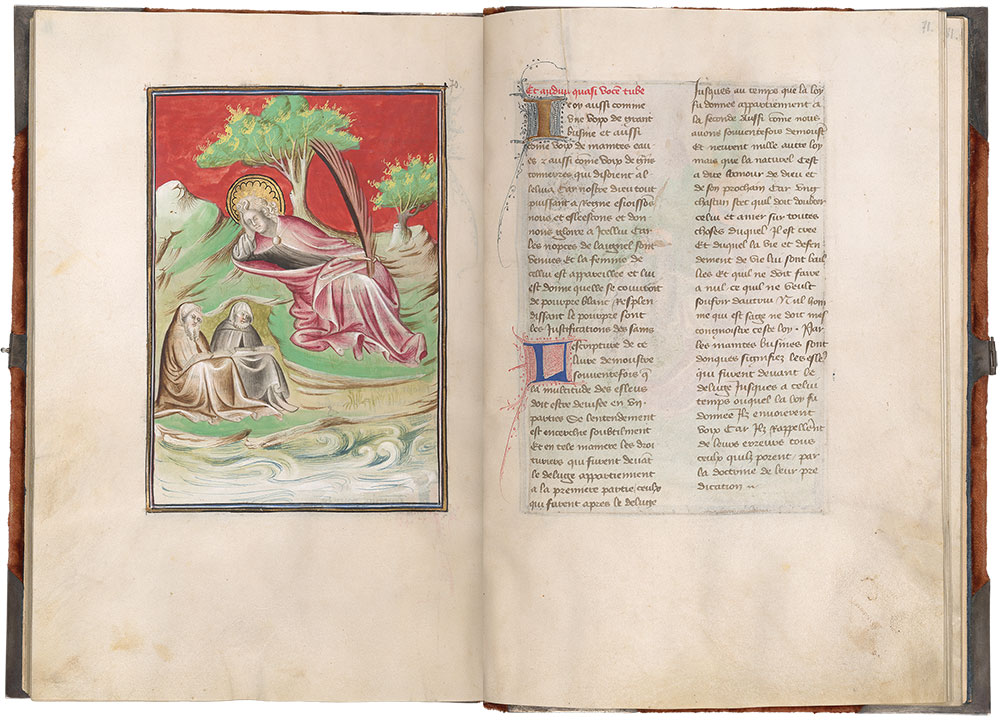 70
71
Et audivi quasi vocē tube
Ieoy aussi comme
vne voix de grant
busine et aussi
cōme voix de maintes eau
es z aussi cōme voix de grās
tonnerres qui disoient al
leluia Car nostre dieu tout
puissant a Regne esioissōs
nous et esleescons et don
nons gloire a Icellui Car
les nopces de laignel sont
venues Et la femme de
cellui est appareillee et lui
est donne quelle se couvrit
de pourpre blanc Resplen
dissant le pourpre sont
les Justifications des sains
Lescripture de ce
livre demoustre
souventefois q̄
la multitude des esleus
doit estre devisee en vij.
parties Se lentendement
est encerchie soubtilment
Et en tele maniere les droi
turiers qui furent devāt
le deluge appartiennent
a la premiere partie ceulx
qui furent apres le deluge
Jusques au temps que la loy
fu donnee appartiennent a
la seconde aussi cōme nous
avons souventefois demoustre
Et neurent nulle autre loy
mais que la naturel Cest
a dire lamour de dieu et
de son prochain Car vng
chascun scet quil doit doubter
celui et amer sur toutes
choses duquel Il est cree
Et duquel la vie et defen
dement de vie lui sont bail
lies Et quil ne doit faire
a nul ce quil ne veult
souffrir dautrui Nul hom
me qui est sage ne doit mes
congnoistre ceste loy. Par
les maintes busines sont
donques signifiez les esleus
qui furent devant le
deluge Jusques a celui
temps ouquel la loy fu
donnee Ilz envoierent
voix Car Ilz rappellent
de leurs erreurs tous
ceulx quilz porent, par
la doctrine de leur pre
dication